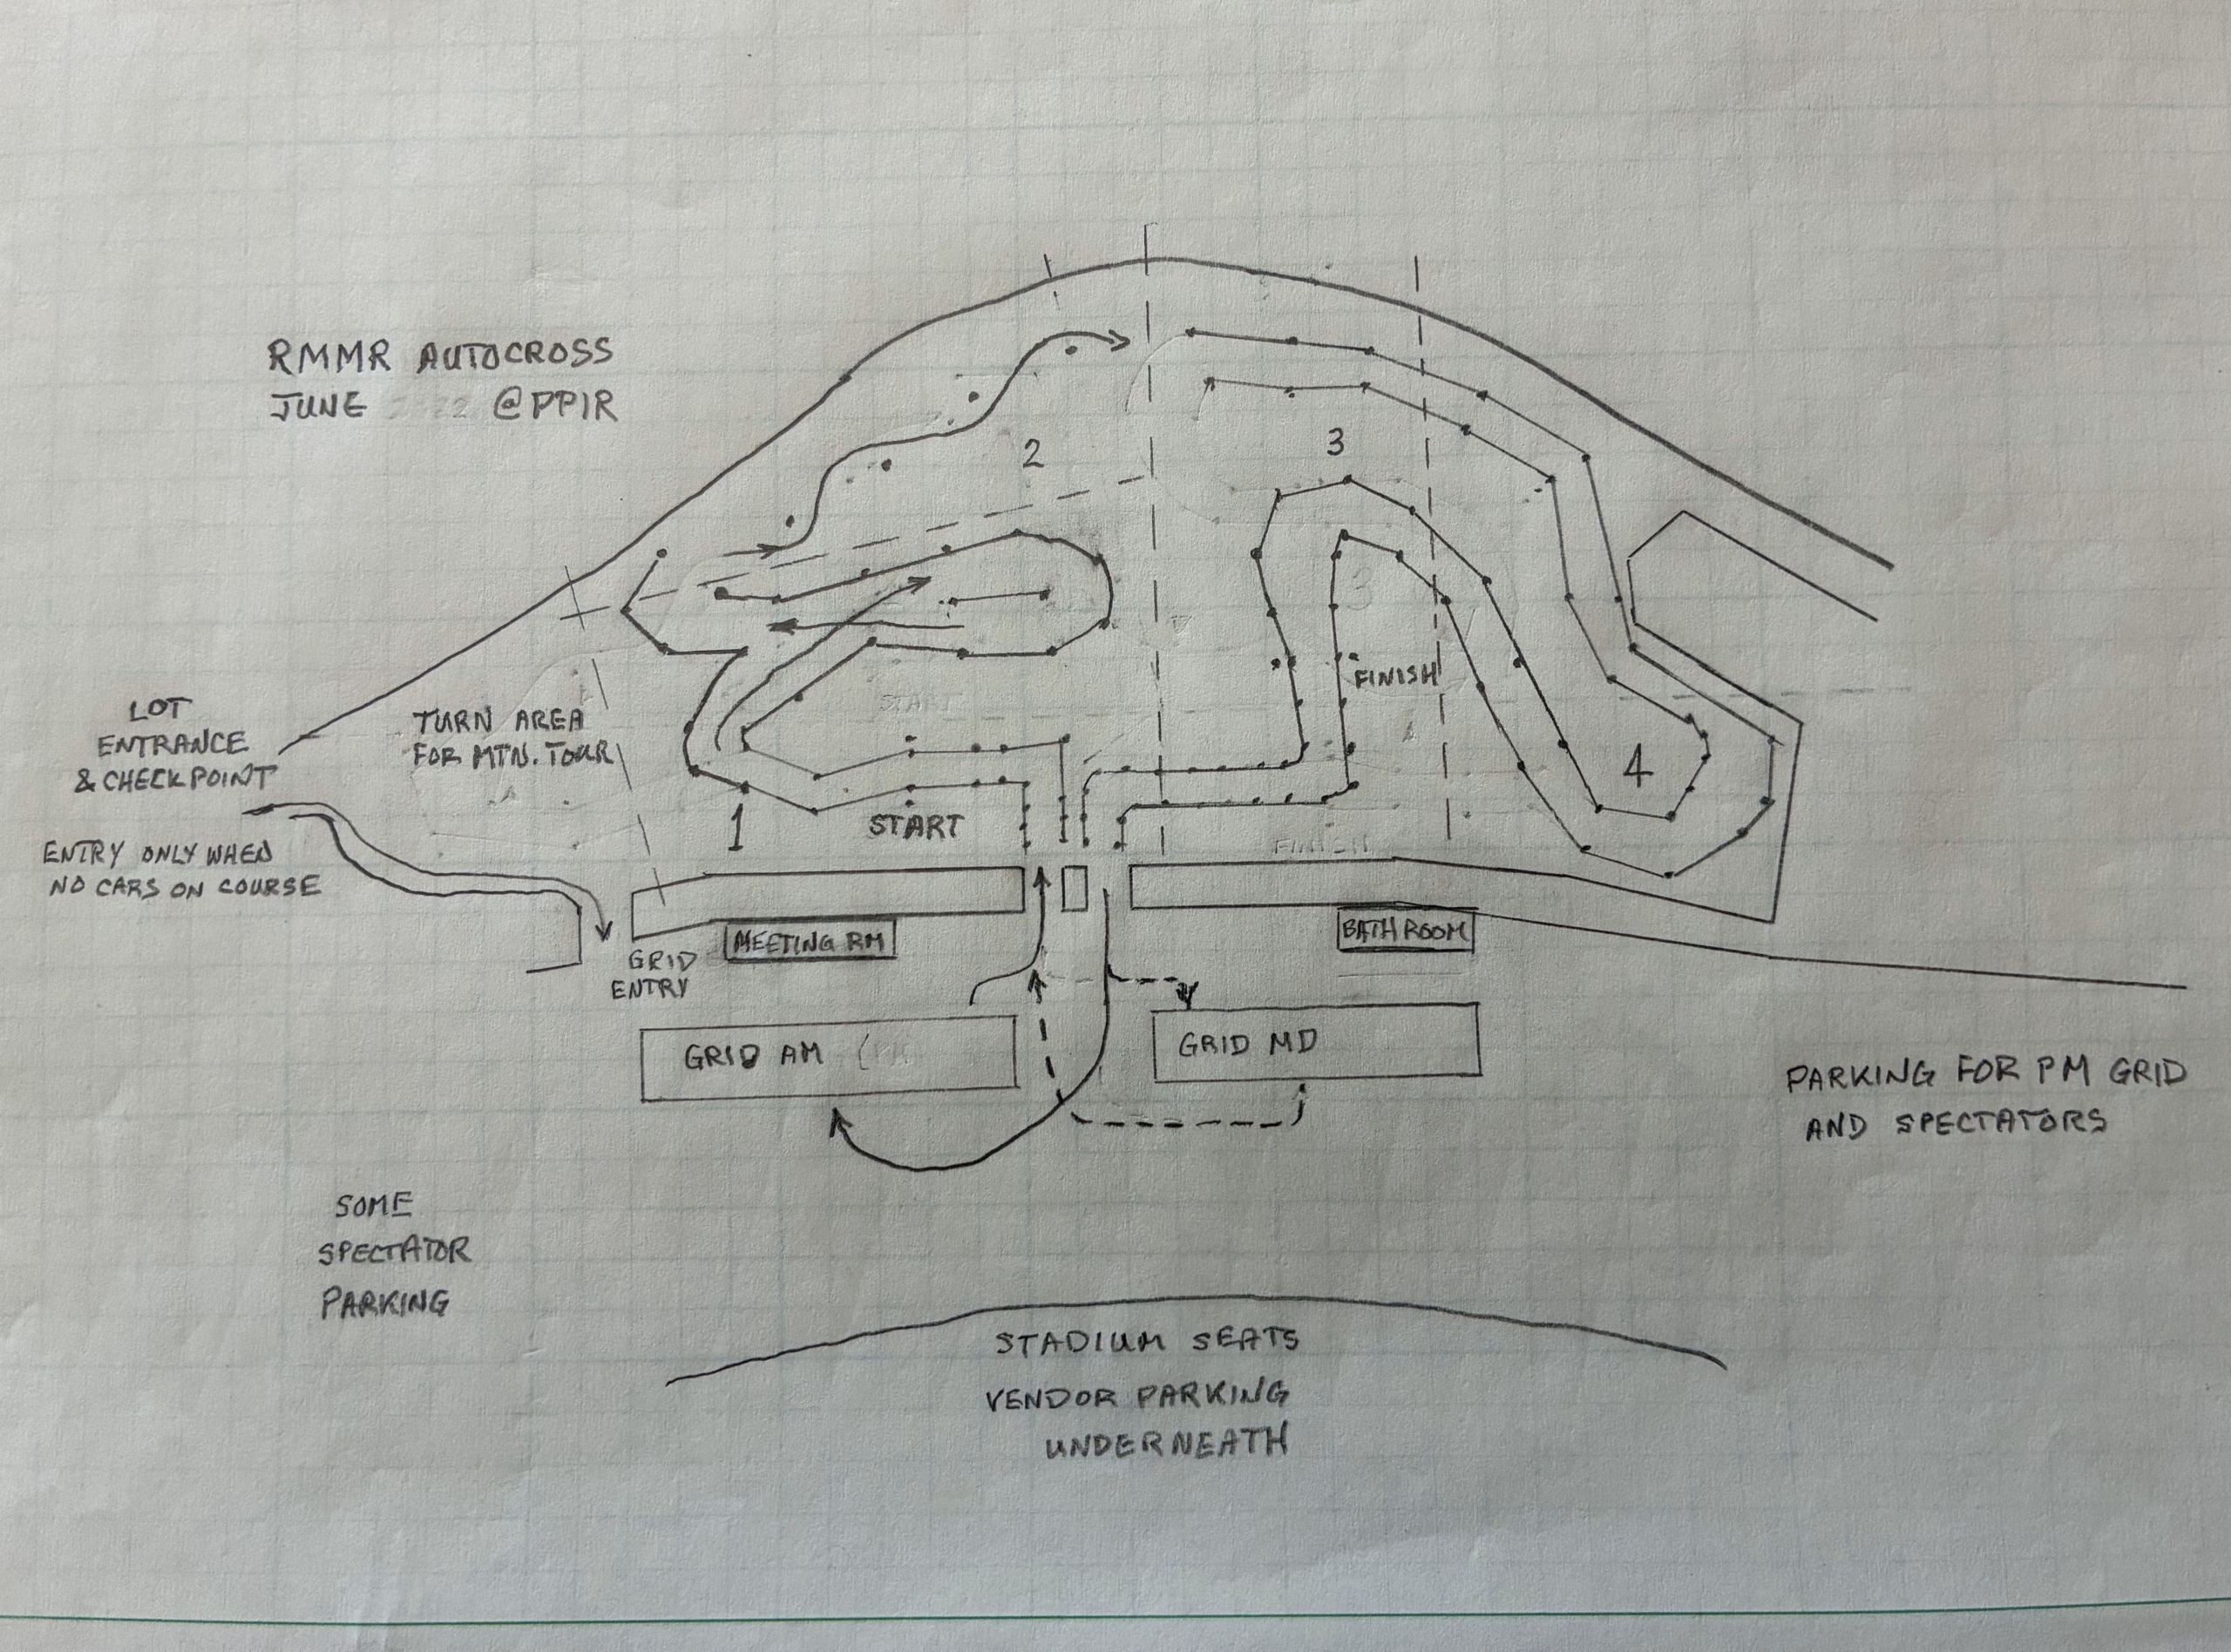 RMMR AUTOCROSS
JUNE 2022 @PPIR
2
3
LOT
ENTRANCE
& CHECKPOINT
TURN AREA
FOR MTN. TOUR
START
FINISH
3
4
1
START
FINISH
ENTRY ONLY WHEN
NO CARS ON COURSE
MEETING RM
BATHROOM
GRID
ENTRY
GRID AM
GRID MD
PARKING FOR PM GRID
AND SPECTATORS
SOME
SPECTATOR
PARKING
STADIUM SEATS
VENDOR PARKING
UNDERNEATH